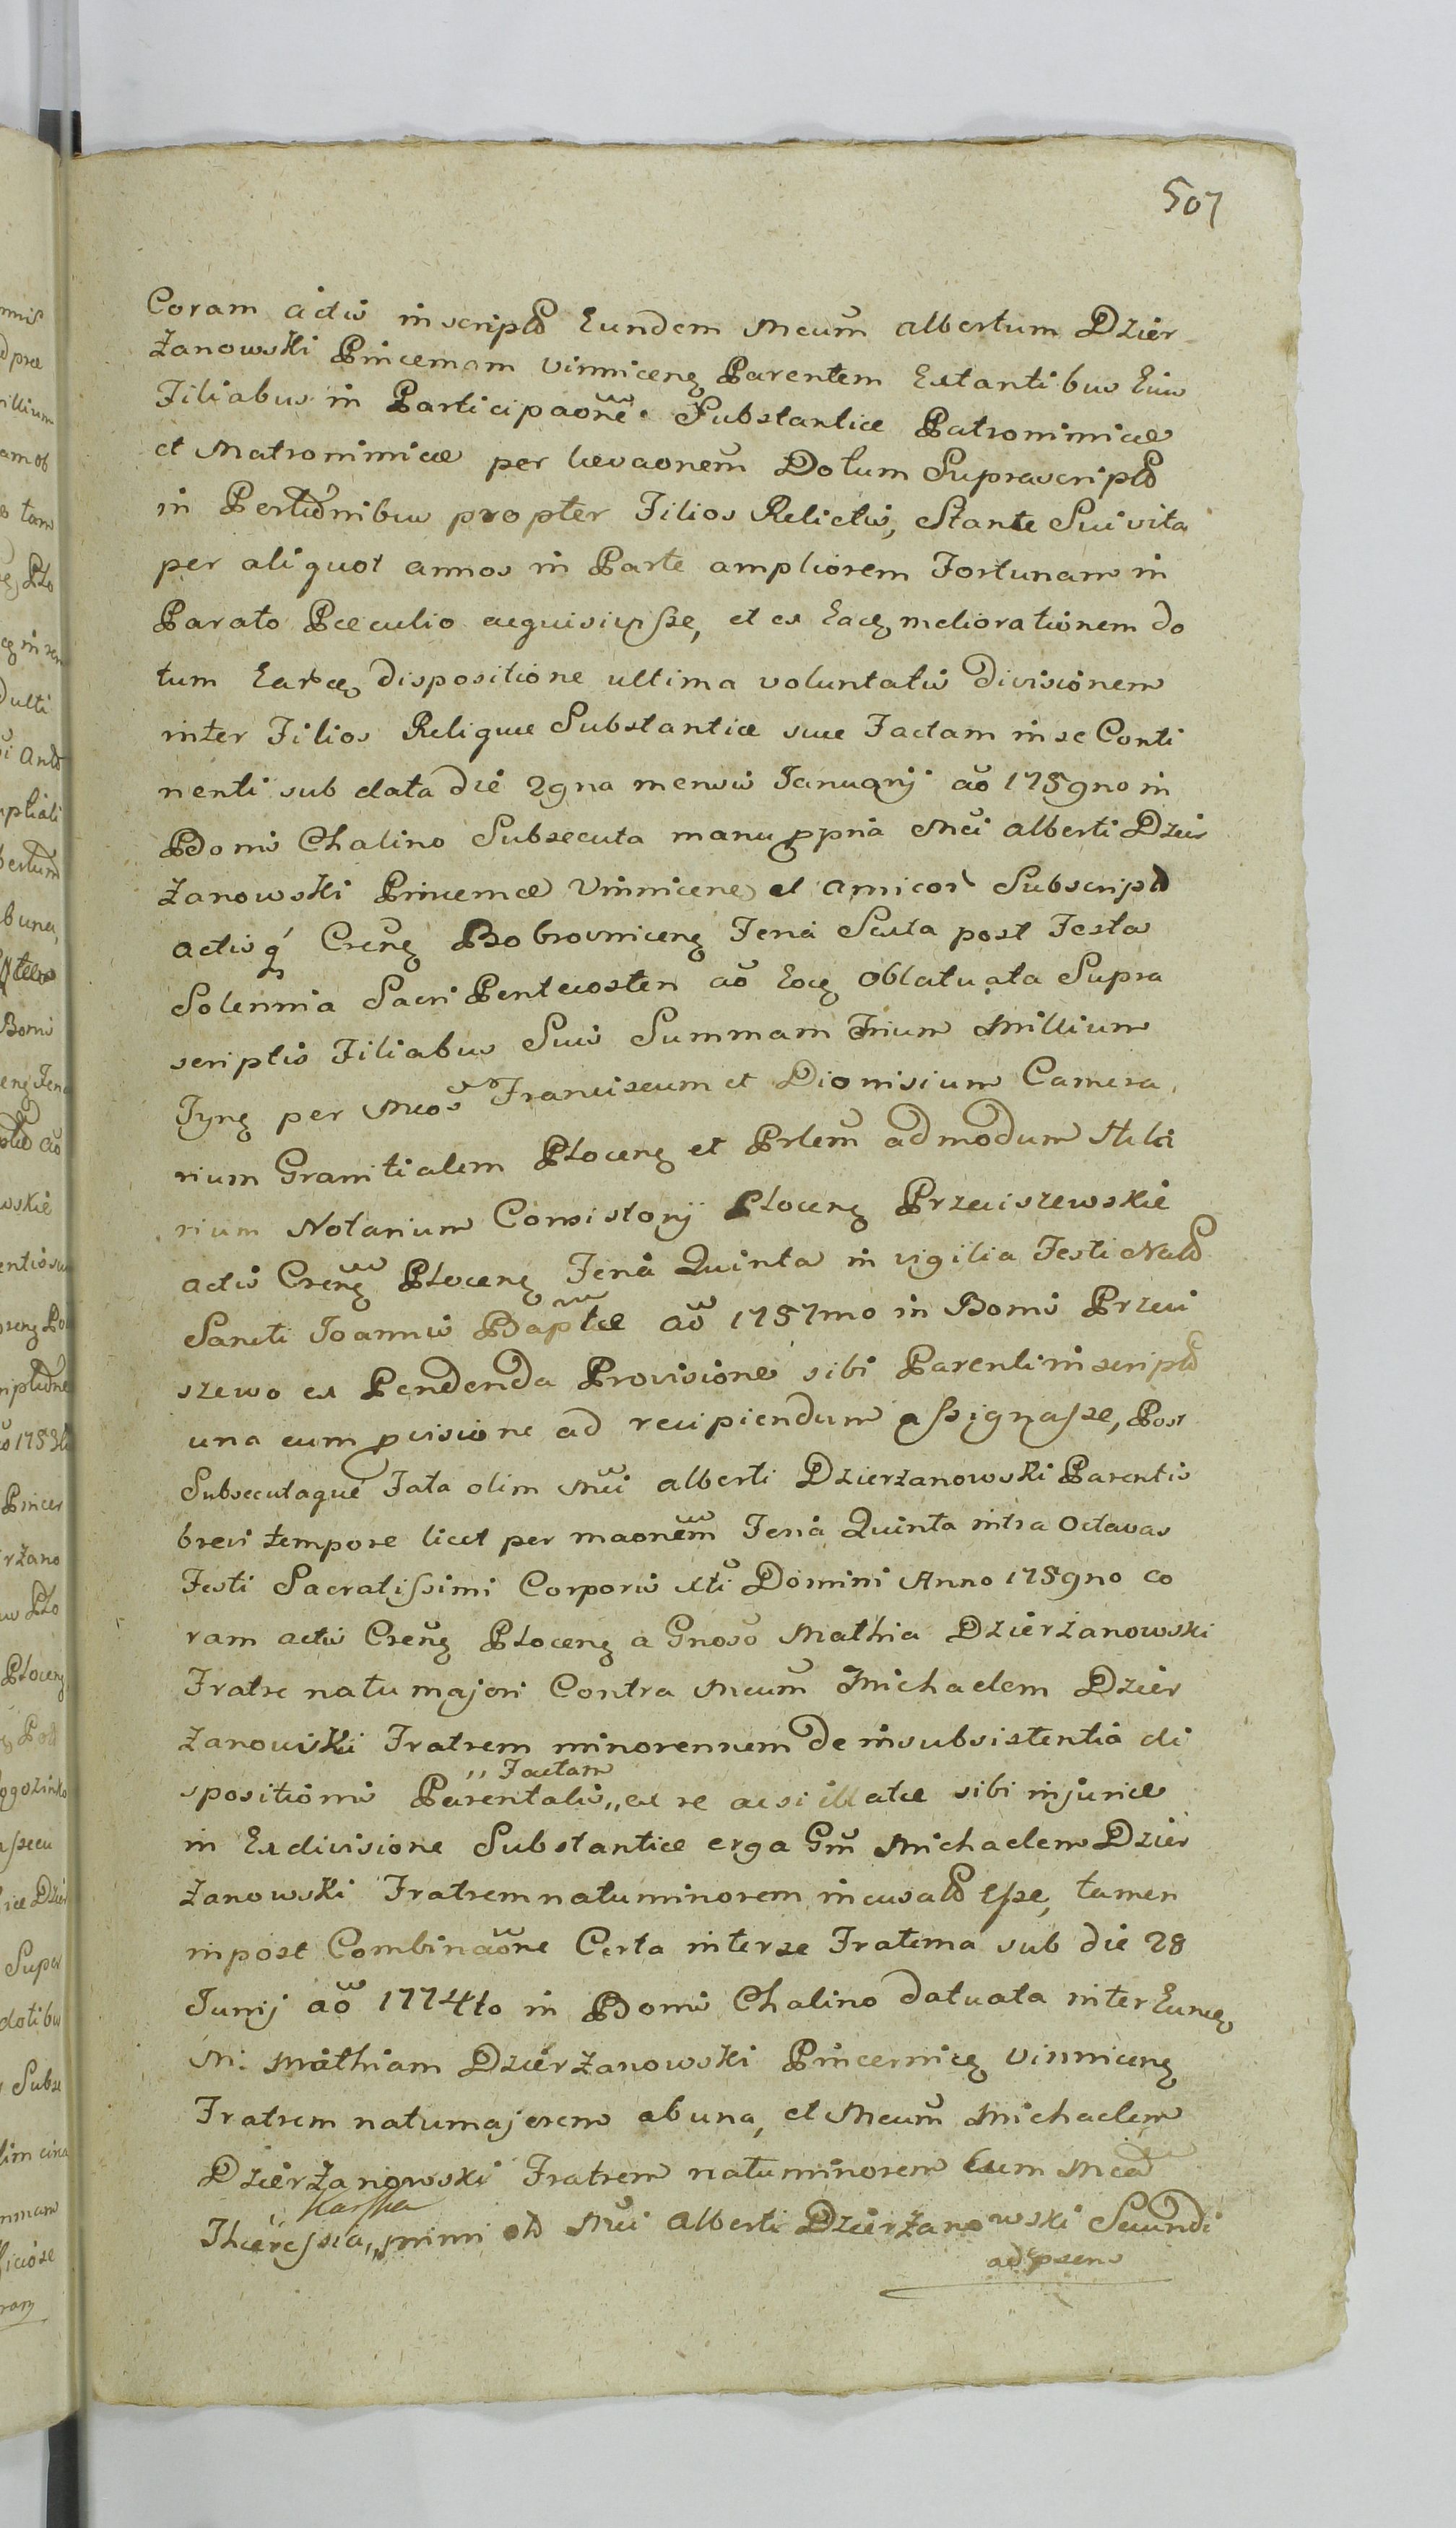 507
Coram actis inscripto Eundem Mcum albertum Dzier
żanowski Pincernam vinnicens Parentem Extantibus Eius
Filiabus in Participaone Substantiæ Patronimicæ
et Matronimicæ per levaonem Dotum Suprascripto
in Portionibus propter Filios Relictis, Stante Sui vita
per aliquot annos in Parte ampliorem Fortunam in
Parato Peculio acquisivisse, et ex Eaq meliorationem do
tum dispositione ultima voluntatis divisionem
inter Filios Reliquæ Substantiæ suæ Factam in se Conti
nenti sub data die 29na mensis Januarij ao 1759no in
Bonis Chalino Subsecuta manu ppria Mci alberti Dzier
żanowski Pincernæ Vinnicens et amicor Subscripto
actisq Crens Bobrovnicens Feria Sexta post Festa
Solennia Sacri Pentecosten ao Eoq Oblatuata Supra
scriptis Filiabus Suis Summam Trium Millium
Fynq per Mcos Franciscum et Dionisium Camera
rium Granitialem Plocens et Prlem admodum
rium Notarium Consistorij Plocens Przeciszewskie
actis Crens Plocens Feria Quinta in vigilia Festi Nato
Sancti Joannis Baptæ ao 1757mo in Bonis Przeci
szewo ex Pendenda Provisione sibi Parenti inscripto
una cum pvisione ad recipiendum assignasse, Post
Subsecutaque Fata olim Mci alberti Dzierżanowski Parentis
brevi tempore licet per maonem Feria Quinta intra Octavas
Festi Sacratissimi Corporis Xti Domini Anno 1759no co
ram actis Crens Plocens a Gnoso Mathia Dzierżanowski
Fratre natu majori Contra Mcum Michaelem Dzier
żanowski Fratrem minorennem de insubsistentia di
spositionis Parentalis,, ex re acsi illatæ sibi injuriæ
,, Factam
in Exdivisione Substantiæ erga Gm Michaelem Dzier
żanowski Fratrem natu minorem incusato Esse, tamen
inpost Combinaone Certa inter se Fraterna sub die 28
Junij ao 1774to in Bonis Chalino datuata inter Eunq
M: Mathiam Dzierżanowski Pincernicz vinnicens
Fratrem natu majorem ab una, et Mcum Michaelem
Dzierżanowski Fratrem natu minorem cum Mca
Theressia,, primi olo Mci Alberti Dzierżanowski Secundi
ad psens